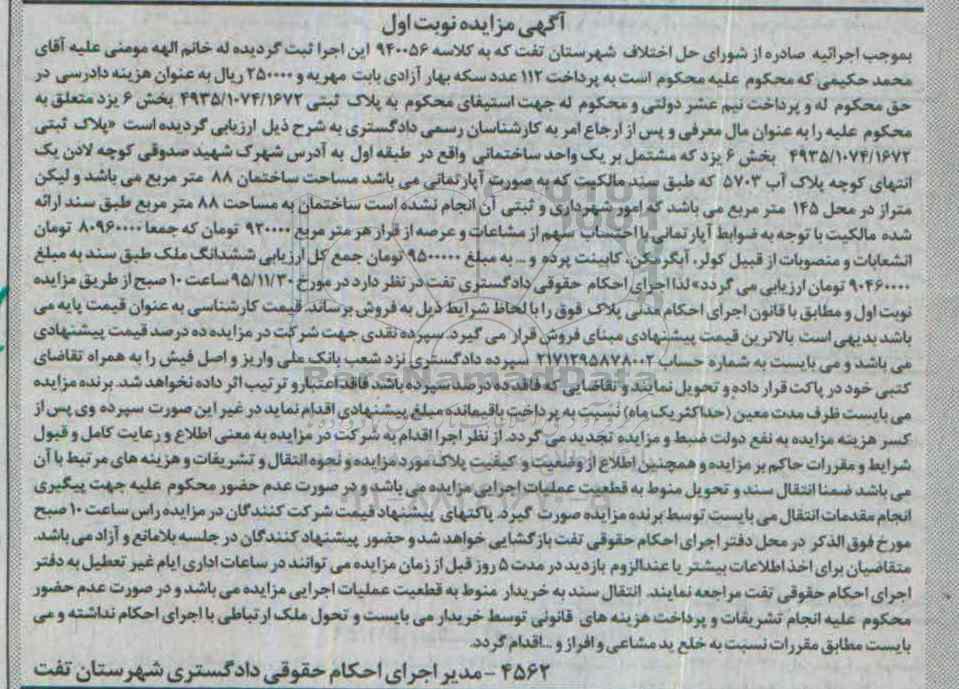 آگهی مزایده نوبت اول
بموجب اجرائیه صادره از شورای حل اختلاف شهرستان تفت که به کلاسه ۹۴۰۰۵۶ این اجرا ثبت گردیده له خانم الهه مومنی علیه آقای
محمد حکیمی که محکوم علیه محکوم است به پرداخت ۱۱۲ عدد سکه بهار آزادی بابت مهریه و ۲۵۰۰۰۰ ریال به عنوان هزینه دادرسی در
حق محکوم له و پرداخت نیم عشر دولتی و محکوم له جهت استیفای محکوم به پلاک ثبتی ۴۹۳۵/۱۰۷۴/۱۶۷۲ بخش ۶ یزد متعلق به
محکوم علیه را به عنوان مال معرفی و پس از ارجاع امر به کارشناسان رسمی دادگستری به شرح ذیل ارزیابی گردیده است «پلاک ثبتی
۴۹۳۵/۱۰۷۴/۱۶۷۲ بخش ۶ یزد که مشتمل بر یک واحد ساختمانی واقع در طبقه اول به آدرس شهرک شهید صدوقی کوچه لادن یک
انتهای کوچه پلاک آب ۵۷۰۳ که طبق سند مالکیت که به صورت آپارتمانی می باشد مساحت ساختمان ۸۸ متر مربع می باشد و لیکن
متراژ در محل ۱۴۵ متر مربع می باشد که امور شهرداری و ثبتی آن انجام نشده است ساختمان به مساحت ۸۸ متر مربع طبق سند ارائه
شده مالکیت با توجه به ضوابط آپارتمانی با احتساب سهم از مشاعات و عرصه از قرار هر متر مربع ۹۲۰۰۰۰ تومان که جمعا ۸۰۹۶۰۰۰۰ تومان
انشعابات و منصوبات از قبیل کولر، آبگرمکن، کابینت پرده و ... به مبلغ ۹۵۰۰۰۰۰ تومان جمع کل ارزیابی ششدانگ ملک طبق سند به مبلغ
۹۰۴۶۰۰۰۰ تومان ارزیابی می گردد» لذا اجرای احکام حقوقی دادگستری تفت در نظر دارد در مورخ ۹۵/۱۱/۳۰ ساعت ۱۰ صبح از طریق مزایده
نوبت اول و مطابق با قانون اجرای احکام مدنی پلاک فوق را با لحاظ شرایط ذیل به فروش برساند. قیمت کارشناسی به عنوان قیمت پایه می
باشد بدیهی است بالاترین قیمت پیشنهادی مبنای فروش قرار می گیرد. سپرده نقدی جهت شرکت در مزایده ده درصد قیمت پیشنهادی
می باشد و می بایست به شماره حساب ۲۱۷۱۲۹۵۸۷۸۰۰۲ سپرده دادگستری نزد شعب بانک ملی واریز و اصل فیش را به همراه تقاضای
کتبی خود در پاکت قرار داده و تحویل نمایند و تقاضایی که فاقد ده درصد سپرده باشد فاقد اعتبار و ترتیب اثر داده نخواهد شد. برنده مزایده
می بایست ظرف مدت معین (حداکثر یک ماه) نسبت به پرداخت باقیمانده مبلغ پیشنهادی اقدام نماید در غیر این صورت سپرده وی پس از
کسر هزینه مزایده به نفع دولت ضبط و مزایده تجدید می گردد. از نظر اجرا اقدام به شرکت در مزایده به معنی اطلاع و رعایت کامل و قبول
شرایط و مقررات حاکم بر مزایده و همچنین اطلاع از وضعیت و کیفیت پلاک مورد مزایده و نحوه انتقال و تشریفات و هزینه های مرتبط با آن
می باشد ضمنا انتقال سند و تحویل منوط به قطعیت عملیات اجرایی مزایده می باشد و در صورت عدم حضور محکوم علیه جهت پیگیری
انجام مقدمات انتقال می بایست توسط برنده مزایده صورت گیرد. پاکتهای پیشنهاد قیمت شرکت کنندگان در مزایده راس ساعت ۱۰ صبح
مورخ فوق الذکر در محل دفتر اجرای احکام حقوقی تفت بازگشایی خواهد شد و حضور پیشنهاد کنندگان در جلسه بلامانع و آزاد می باشد.
متقاضیان برای اخذ اطلاعات بیشتر یا عندالزوم بازدید در مدت ۵ روز قبل از زمان مزایده می توانند در ساعات اداری ایام غیر تعطیل به دفتر
اجرای احکام حقوقی تفت مراجعه نمایند. انتقال سند به خریدار منوط به قطعیت عملیات اجرایی مزایده می باشد و در صورت عدم حضور
محکوم علیه انجام تشریفات و پرداخت هزینه های قانونی توسط خریدار می بایست و تحول ملک ارتباطی با اجرای احکام نداشته و می
بایست مطابق مقررات نسبت به خلع ید مشاعی و افراز و ...اقدام گردد.
۴۵۶۲ - مدیر اجرای احکام حقوقی دادگستری شهرستان تفت
ParsNamadData